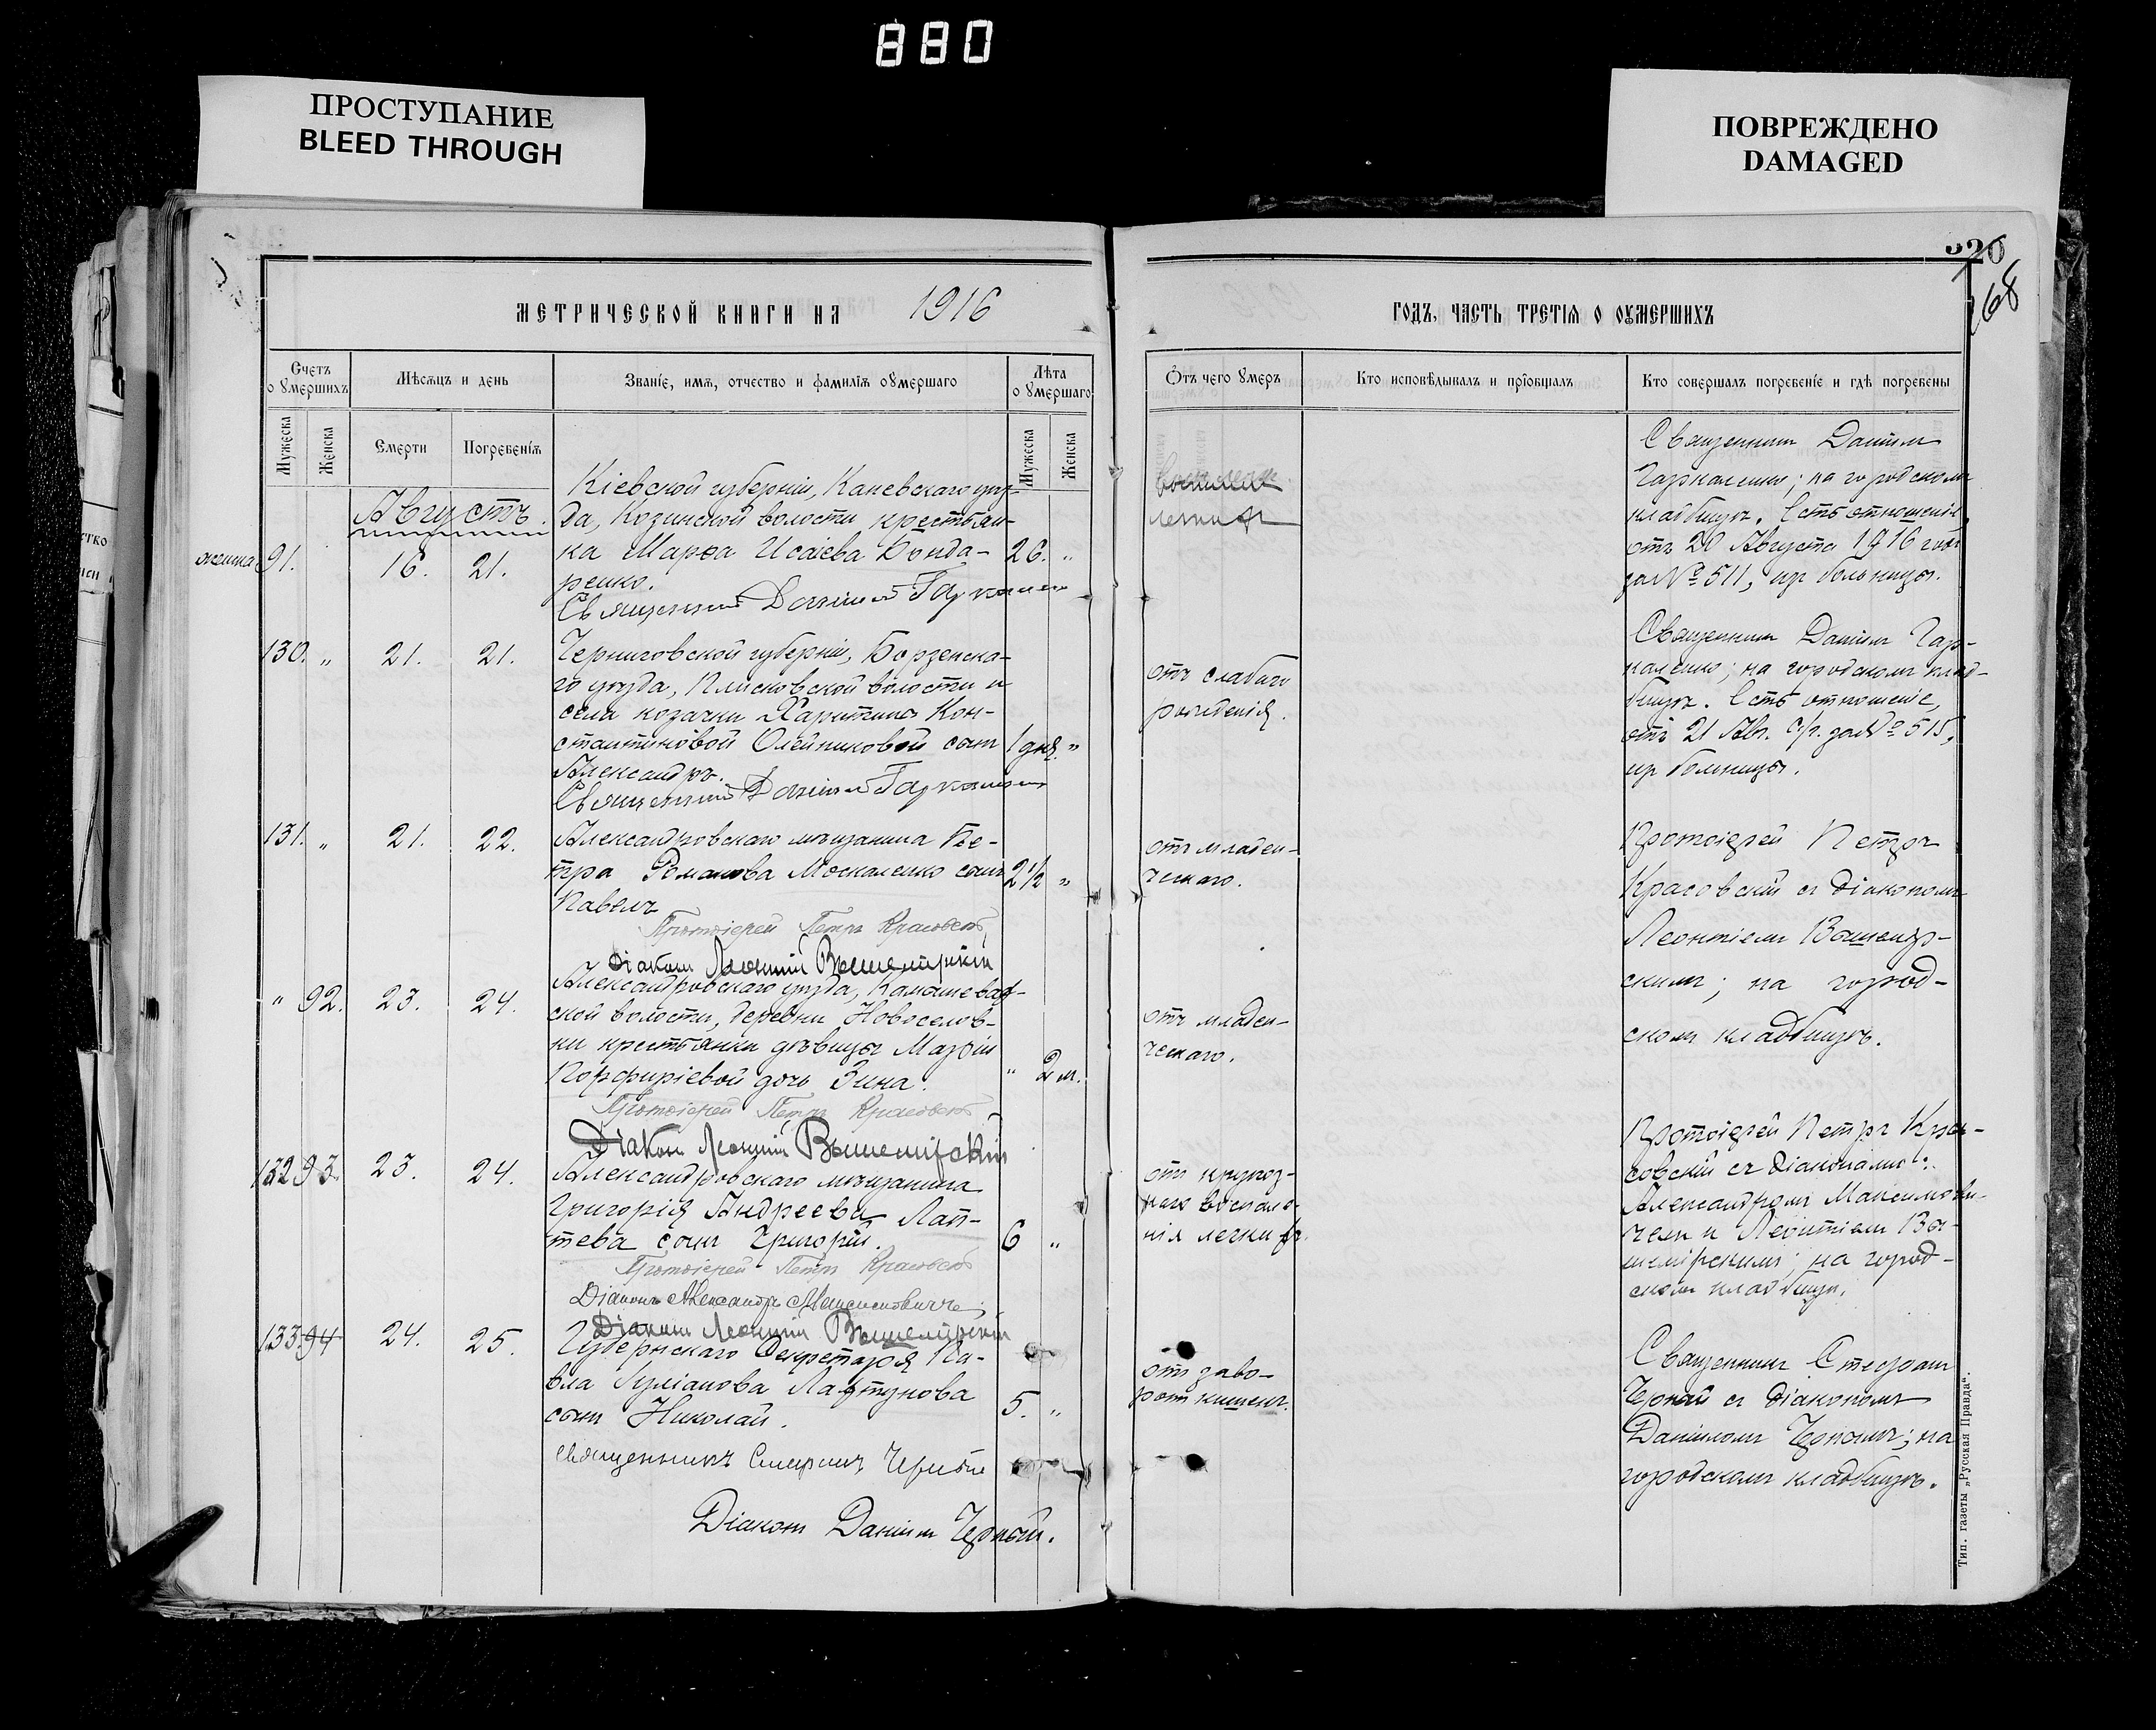 880
ПРОСТУПАНИЕ
BLEED THROUGH
ПОВРЕЖДЕНО
DAMAGED
320
168
МЕТРИЧЕСКОЙ КНИГИ НА 1916
ГОДЪ, ЧАСТЬ ТРЕТІЯ О ОУМЕРШИХЪ
Счетъ о умершихъ
Мѣсяцъ и день
Званіе, имя, отчество и фамилія оумершаго
Лѣта оумершаго
Мужеска
Женска
Смерти
Погребенія
Мужеска
Женска
Отъ чего умеръ
Кто исповѣдывалъ и пріобщалъ
Кто совершалъ погребеніе и гдѣ погребены
Августъ.
91.
16.
21.
Кіевской губерніи, Каневскаго уѣз-
да, Козинской волости крестьян-
ка Марѳа Исаіева Бонда-
ренко.
Священникъ Даніилъ Гаркаленко
26. "
Священникъ Даніилъ
Гаркаленко; на городскомъ
кладбищѣ. Есть отношеніе
отъ 20 Августа 1916 года
за № 511, изъ больницы.
130. "
21.
21.
Черниговской губерніи, Борзенска-
го уѣзда, Плисковской волости и
села козачки Харитины Кон-
стантиновой Олейниковой сынъ
Александръ.
Священникъ Даніилъ Гаркаленко
1 дня. "
отъ слабаго
рожденія.
Священникъ Даніилъ Гар-
каленко; на городскомъ клад-
бищѣ. Есть отношеніе,
отъ 21 Авг. с/г. за № 515,
изъ больницы.
131. "
21.
22.
Александровскаго мѣщанина Пе-
тра Романова Москаленко сынъ
Павелъ
Протоіерей Петръ Красовскій
Діаконъ Леонтій Вышемірскій
2½ "
отъ младен-
ческаго.
Протоіерей Петръ
Красовскій съ діакономъ
Леонтіемъ Вышемір-
скимъ; на город-
скомъ кладбищѣ.
" 92.
23.
24.
Александровскаго уѣзда, Камышеват-
ской волости, деревни Новоселов-
ки крестьянки дѣвицы Маріи
Порфиріевой дочь Зина.
Протоіерей Петръ Красовскій
Діаконъ Леонтій Вышемірскій
" 2 м.
отъ младен-
ческаго.
132 93.
23.
24.
Александровскаго мѣщанина
Григорія Андреева Лап-
тева сынъ Григорій.
Протоіерей Петръ Красовскій
Діаконъ Александръ Максимовичъ
Діаконъ Леонтій Вышемірскій
6 "
отъ крупоз-
наго воспале-
нія легкихъ.
Протоіерей Петръ Кра-
совскій съ діаконами:
Александромъ Максимови-
чемъ и Леонтіемъ Вы-
шемірскимъ; на город-
скомъ кладбищѣ.
133 94
24.
25.
Губернскаго Секретаря Па-
вла Иуліанова
сынъ Николай.
священникъ Стефанъ Черный
Діаконъ Даніилъ Черный.
5. "
отъ заво-
рот кишекъ.
Священникъ Стефанъ
Черный съ діакономъ
Даніиломъ Чернымъ; на
городскомъ кладбищѣ.
Тип. газеты „Русская Правда“.